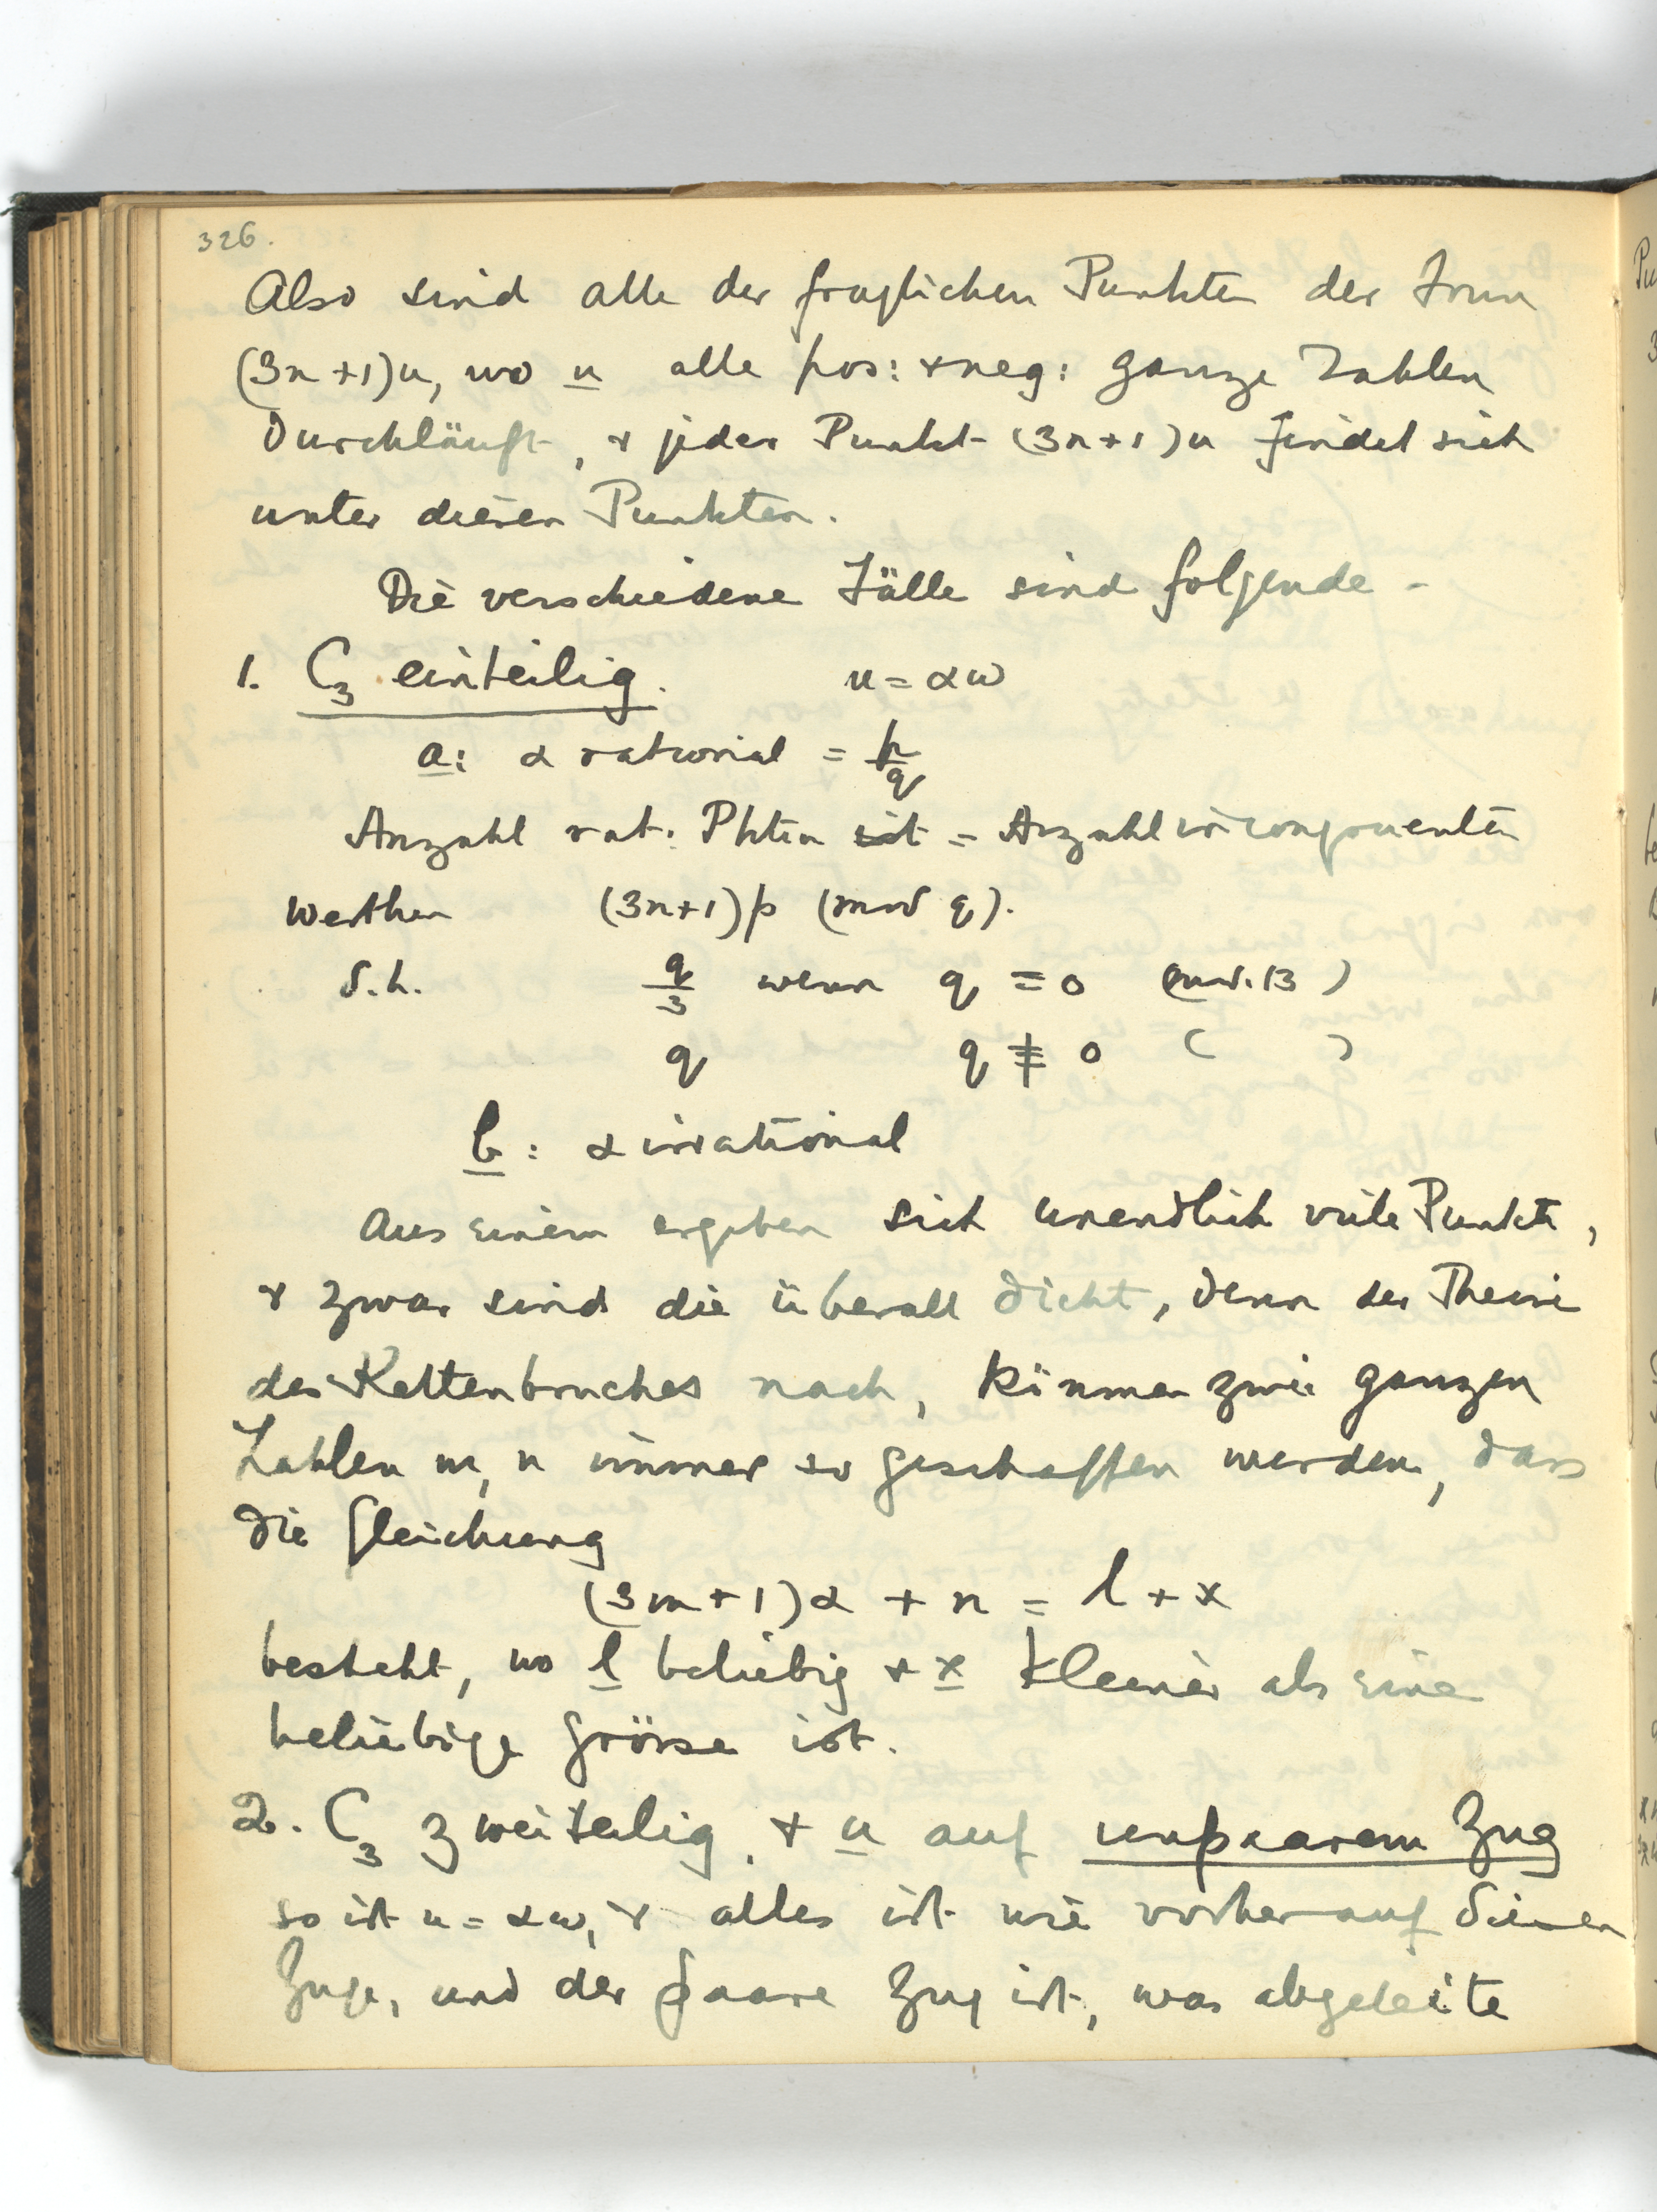 326.
Also sind alle der fraglichen Punkten der Form
(3n+1)u, wo u alle pos: + neg: ganze Zahlen
durchläuft, + jeder Punkt (3n+1)u findet sich
unter diesen Punkten.
Die verschiedene Fälle sind folgende -
1. C₃ einteilig. u = αω
a: α rational = p/q
Anzahl rat: Pkten ist = Anzahl incongruenten
Werthen (3n+1)p (mod q).
d.h. q/3 wenn q ≡ 0 (mod. 3)
q q ≢ 0 ( )
b: α irrational
Aus einem ergeben sich unendlich viele Punkte,
+ zwar sind die überall dicht, denn der Theorie
des Kettenbruches nach, können zwei ganzen
Zahlen m, n immer so geschaffen werden, dass
die Gleichung
(3m+1)α + n = l + x
besteht, wo l beliebig + x kleiner als eine
beliebige Grösse ist.
2. C₃ zweiteilig, + u auf unpaarem Zug
so ist u = αω, + alles ist wie vorher auf diesen
Zuge, und der paare Zug ist, was abgeleite